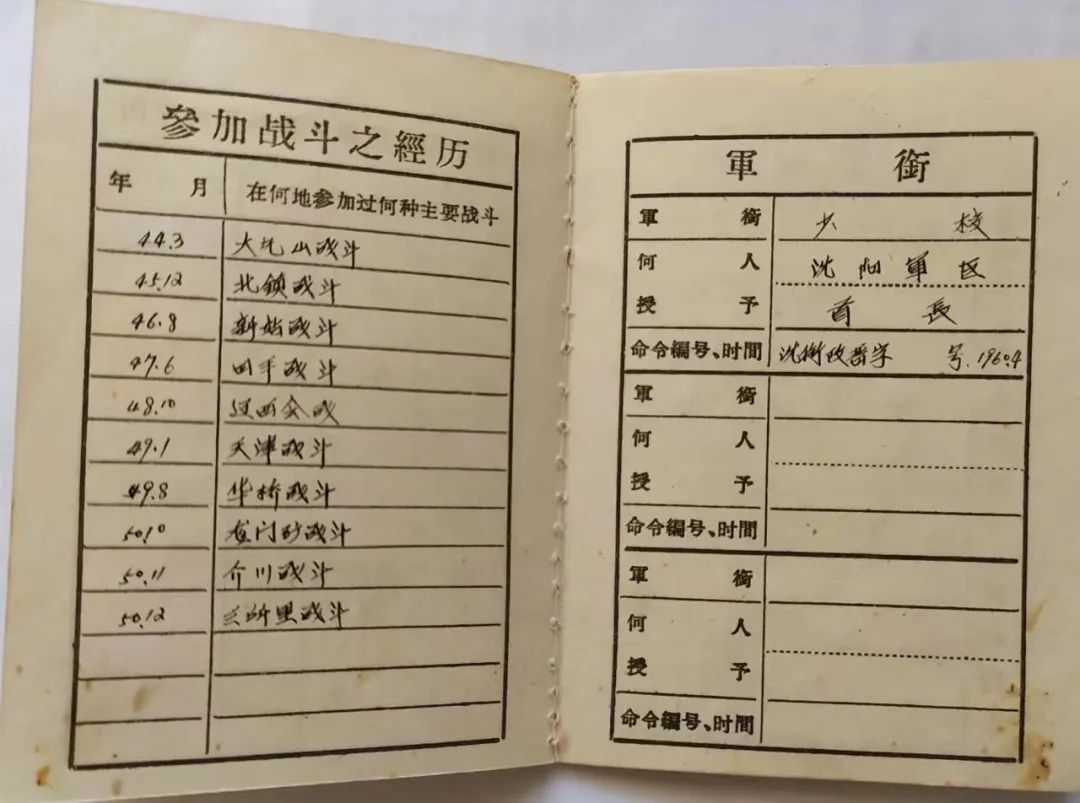 參加战斗之經历
年 月 在何地参加过何种主要战斗
44.3 大九山战斗
45.12 北鎮战斗
46.8 新站战斗
47.6 四平战斗
48.10 辽西会战
49.1 天津战斗
49.8 华桥战斗
50.10 龙门矽战斗
50.11 介川战斗
50.12 三所里战斗
軍 銜
軍 銜 少 校
何 人 沈阳軍区
授 予 首 長
命令編号、时間 沈銜政晋字 号.1960.4
軍 銜
何 人
授 予
命令編号、时間
軍 銜
何 人
授 予
命令編号、时間